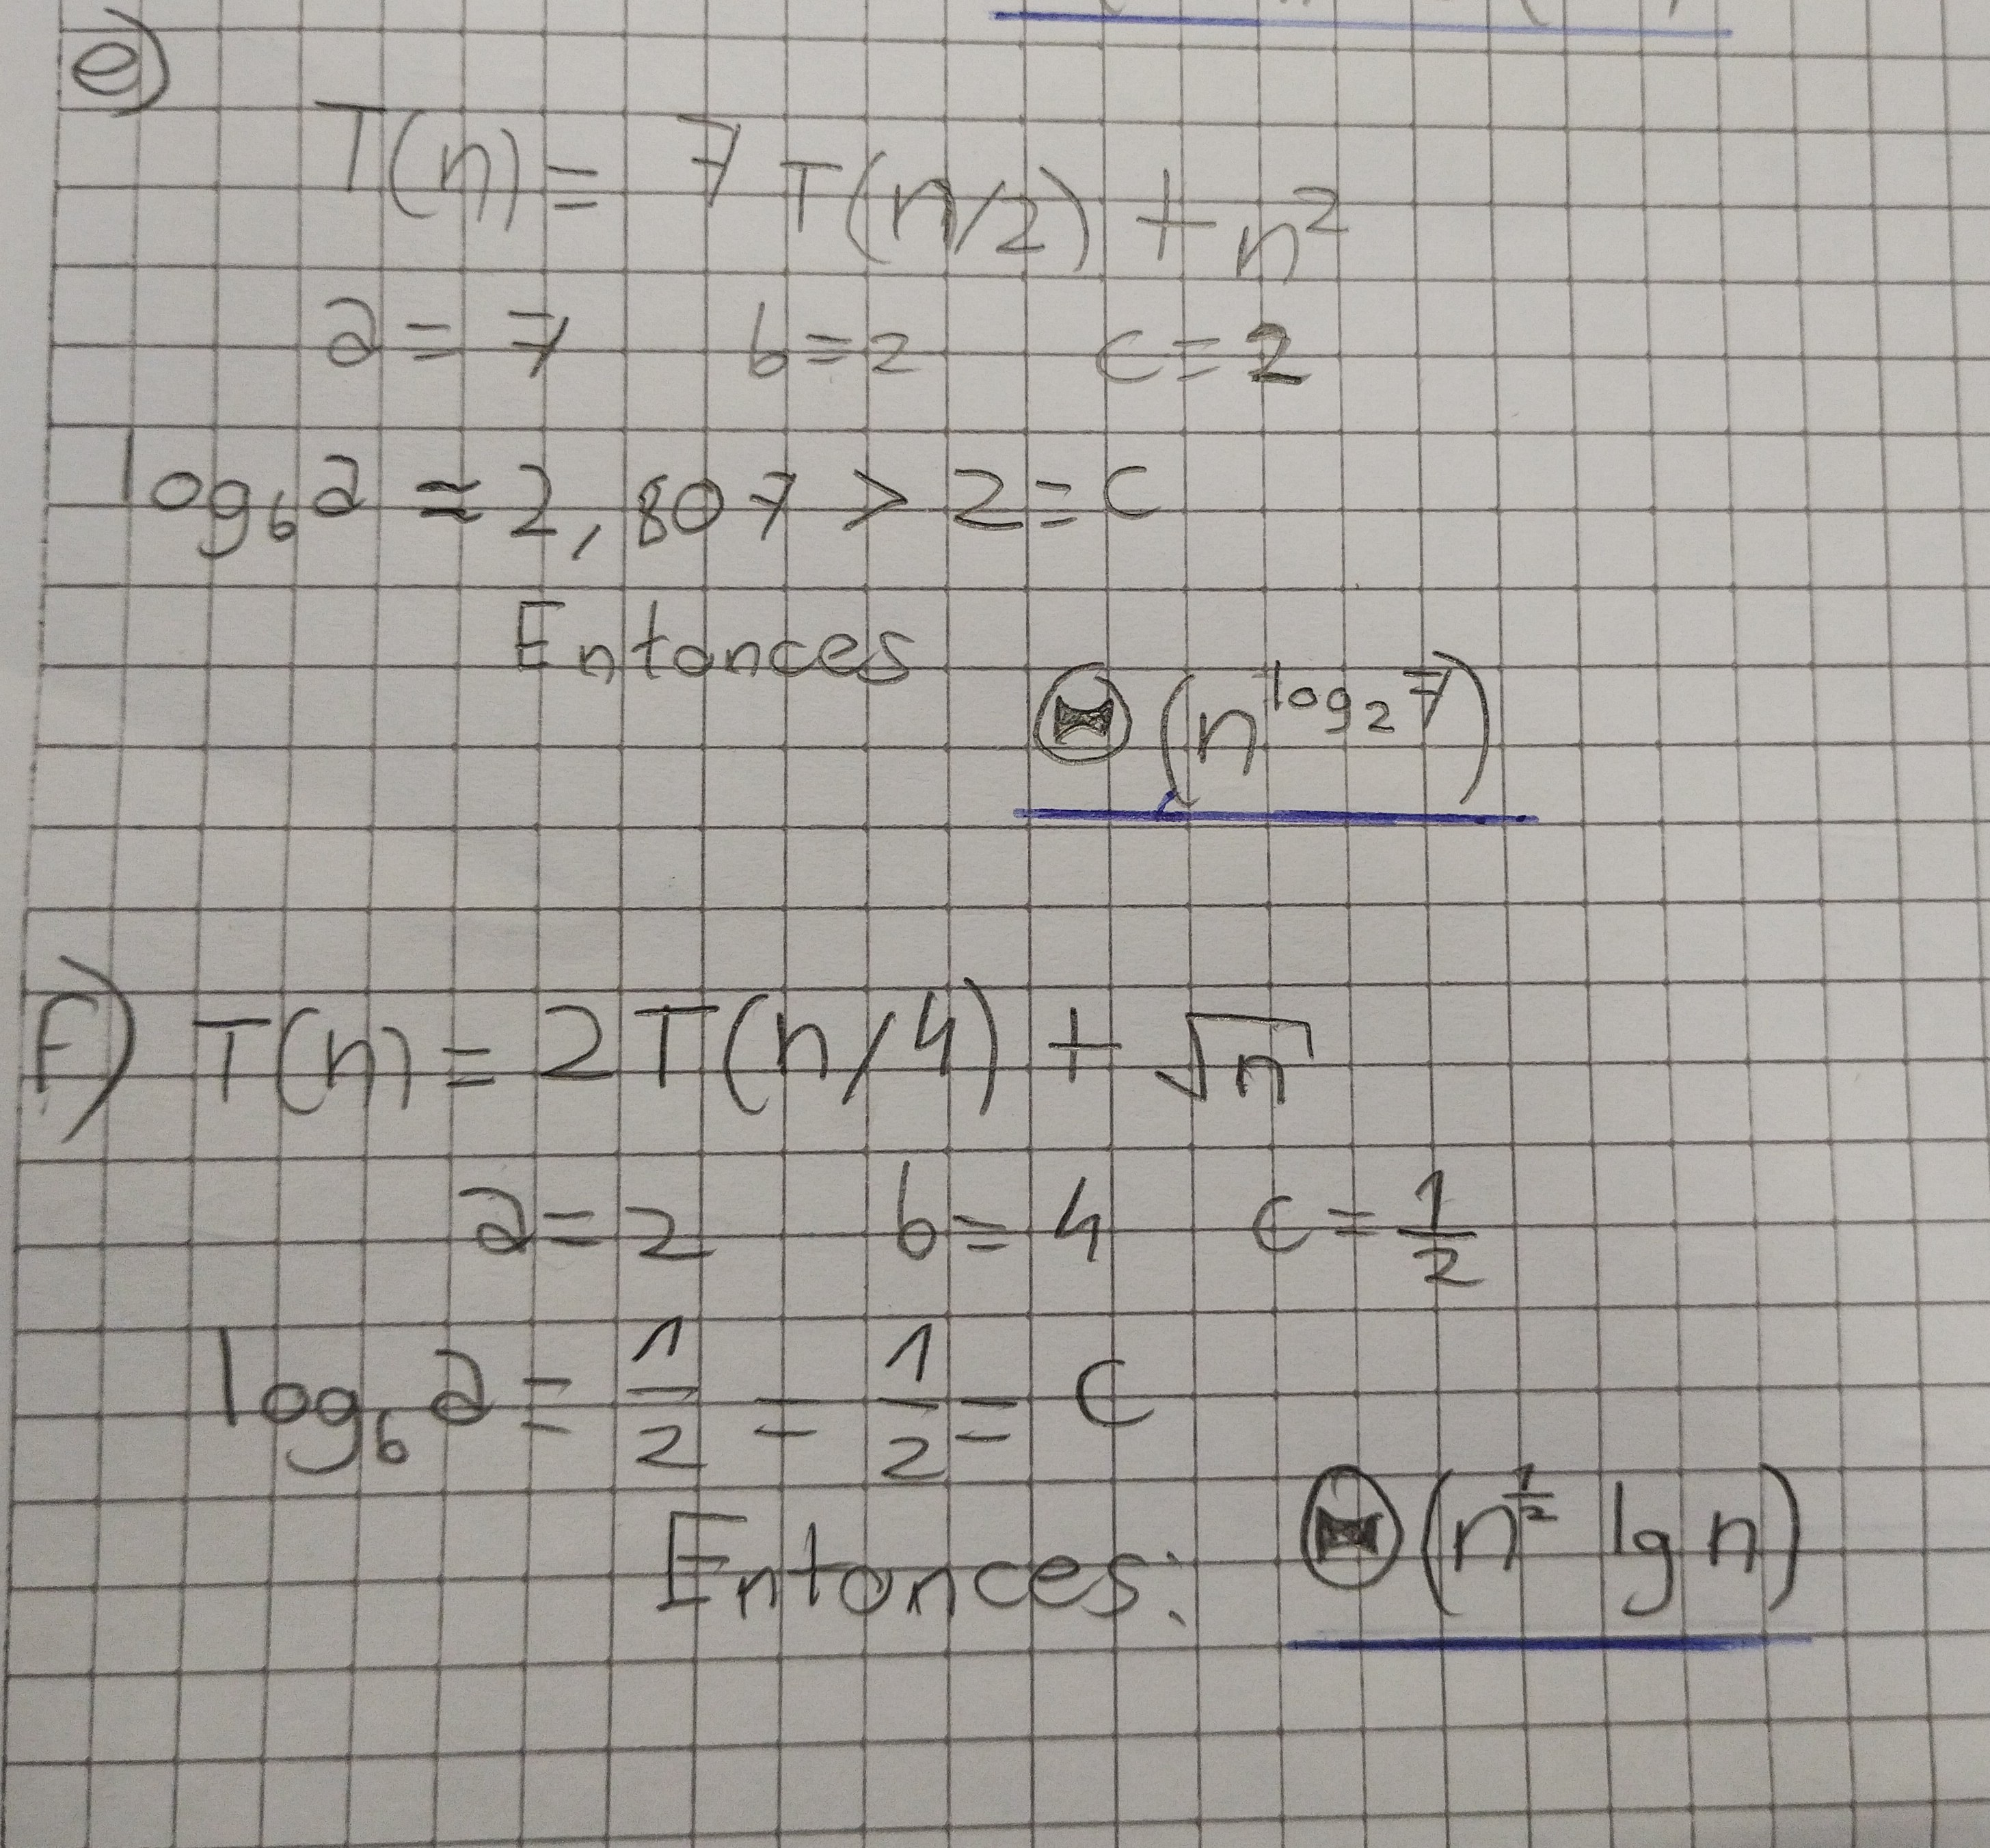 e)
T(n) = 7 T(n/2) + n²
a = 7 b = 2 c = 2
log_b a ≈ 2,807 > 2 = c
Entonces
Θ(n^{log_2 7})
f) T(n) = 2T(n/4) + √n
a = 2 b = 4 c = 1/2
log_b a = 1/2 = 1/2 = c
Entonces: Θ(n^{1/2} lg n)